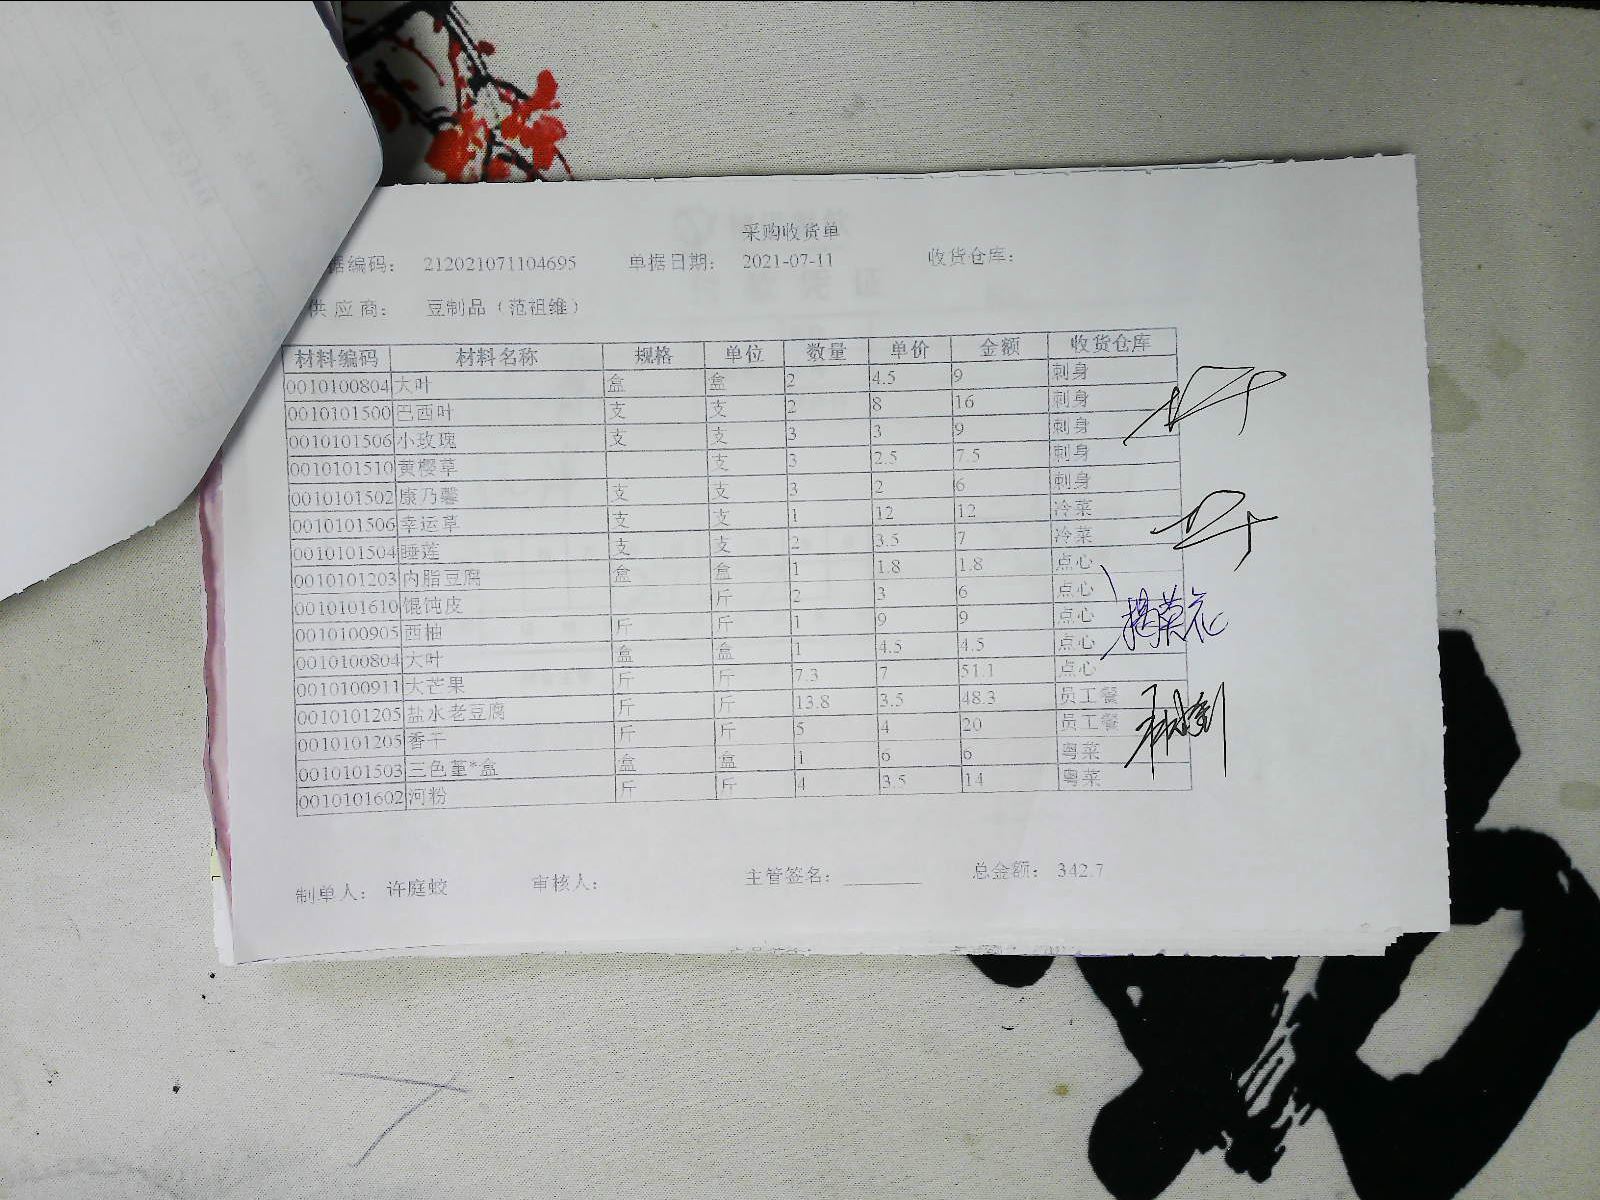 采购收货单
据编码： 212021071104695 单据日期： 2021-07-11 收货仓库：
供应商： 豆制品（范祖维）
材料编码 材料名称 规格 单位 数量 单价 金额 收货仓库
0010100804 大叶 盒 盒 2 4.5 9 刺身
0010101500 巴西叶 支 支 2 8 16 刺身
0010101506 小玫瑰 支 支 3 3 9 刺身
0010101510 黄樱草 支 3 2.5 7.5 刺身
0010101502 康乃馨 支 支 3 2 6 刺身
0010101506 幸运草 支 支 1 12 12 冷菜
0010101504 睡莲 支 支 2 3.5 7 冷菜
0010101203 内脂豆腐 盒 盒 1 1.8 1.8 点心
0010101610 馄饨皮 斤 2 3 6 点心
0010100905 西柚 斤 斤 1 9 9 点心
0010100804 大叶 盒 盒 1 4.5 4.5 点心
0010100911 大芒果 斤 斤 7.3 7 51.1 点心
0010101205 盐水老豆腐 斤 斤 13.8 3.5 48.3 员工餐
0010101205 香干 斤 斤 5 4 20 员工餐
0010101503 三色堇*盒 盒 盒 1 6 6 粤菜
0010101602 河粉 斤 斤 4 3.5 14 粤菜
制单人： 许庭蛟 审核人： 主管签名： 总金额： 342.7